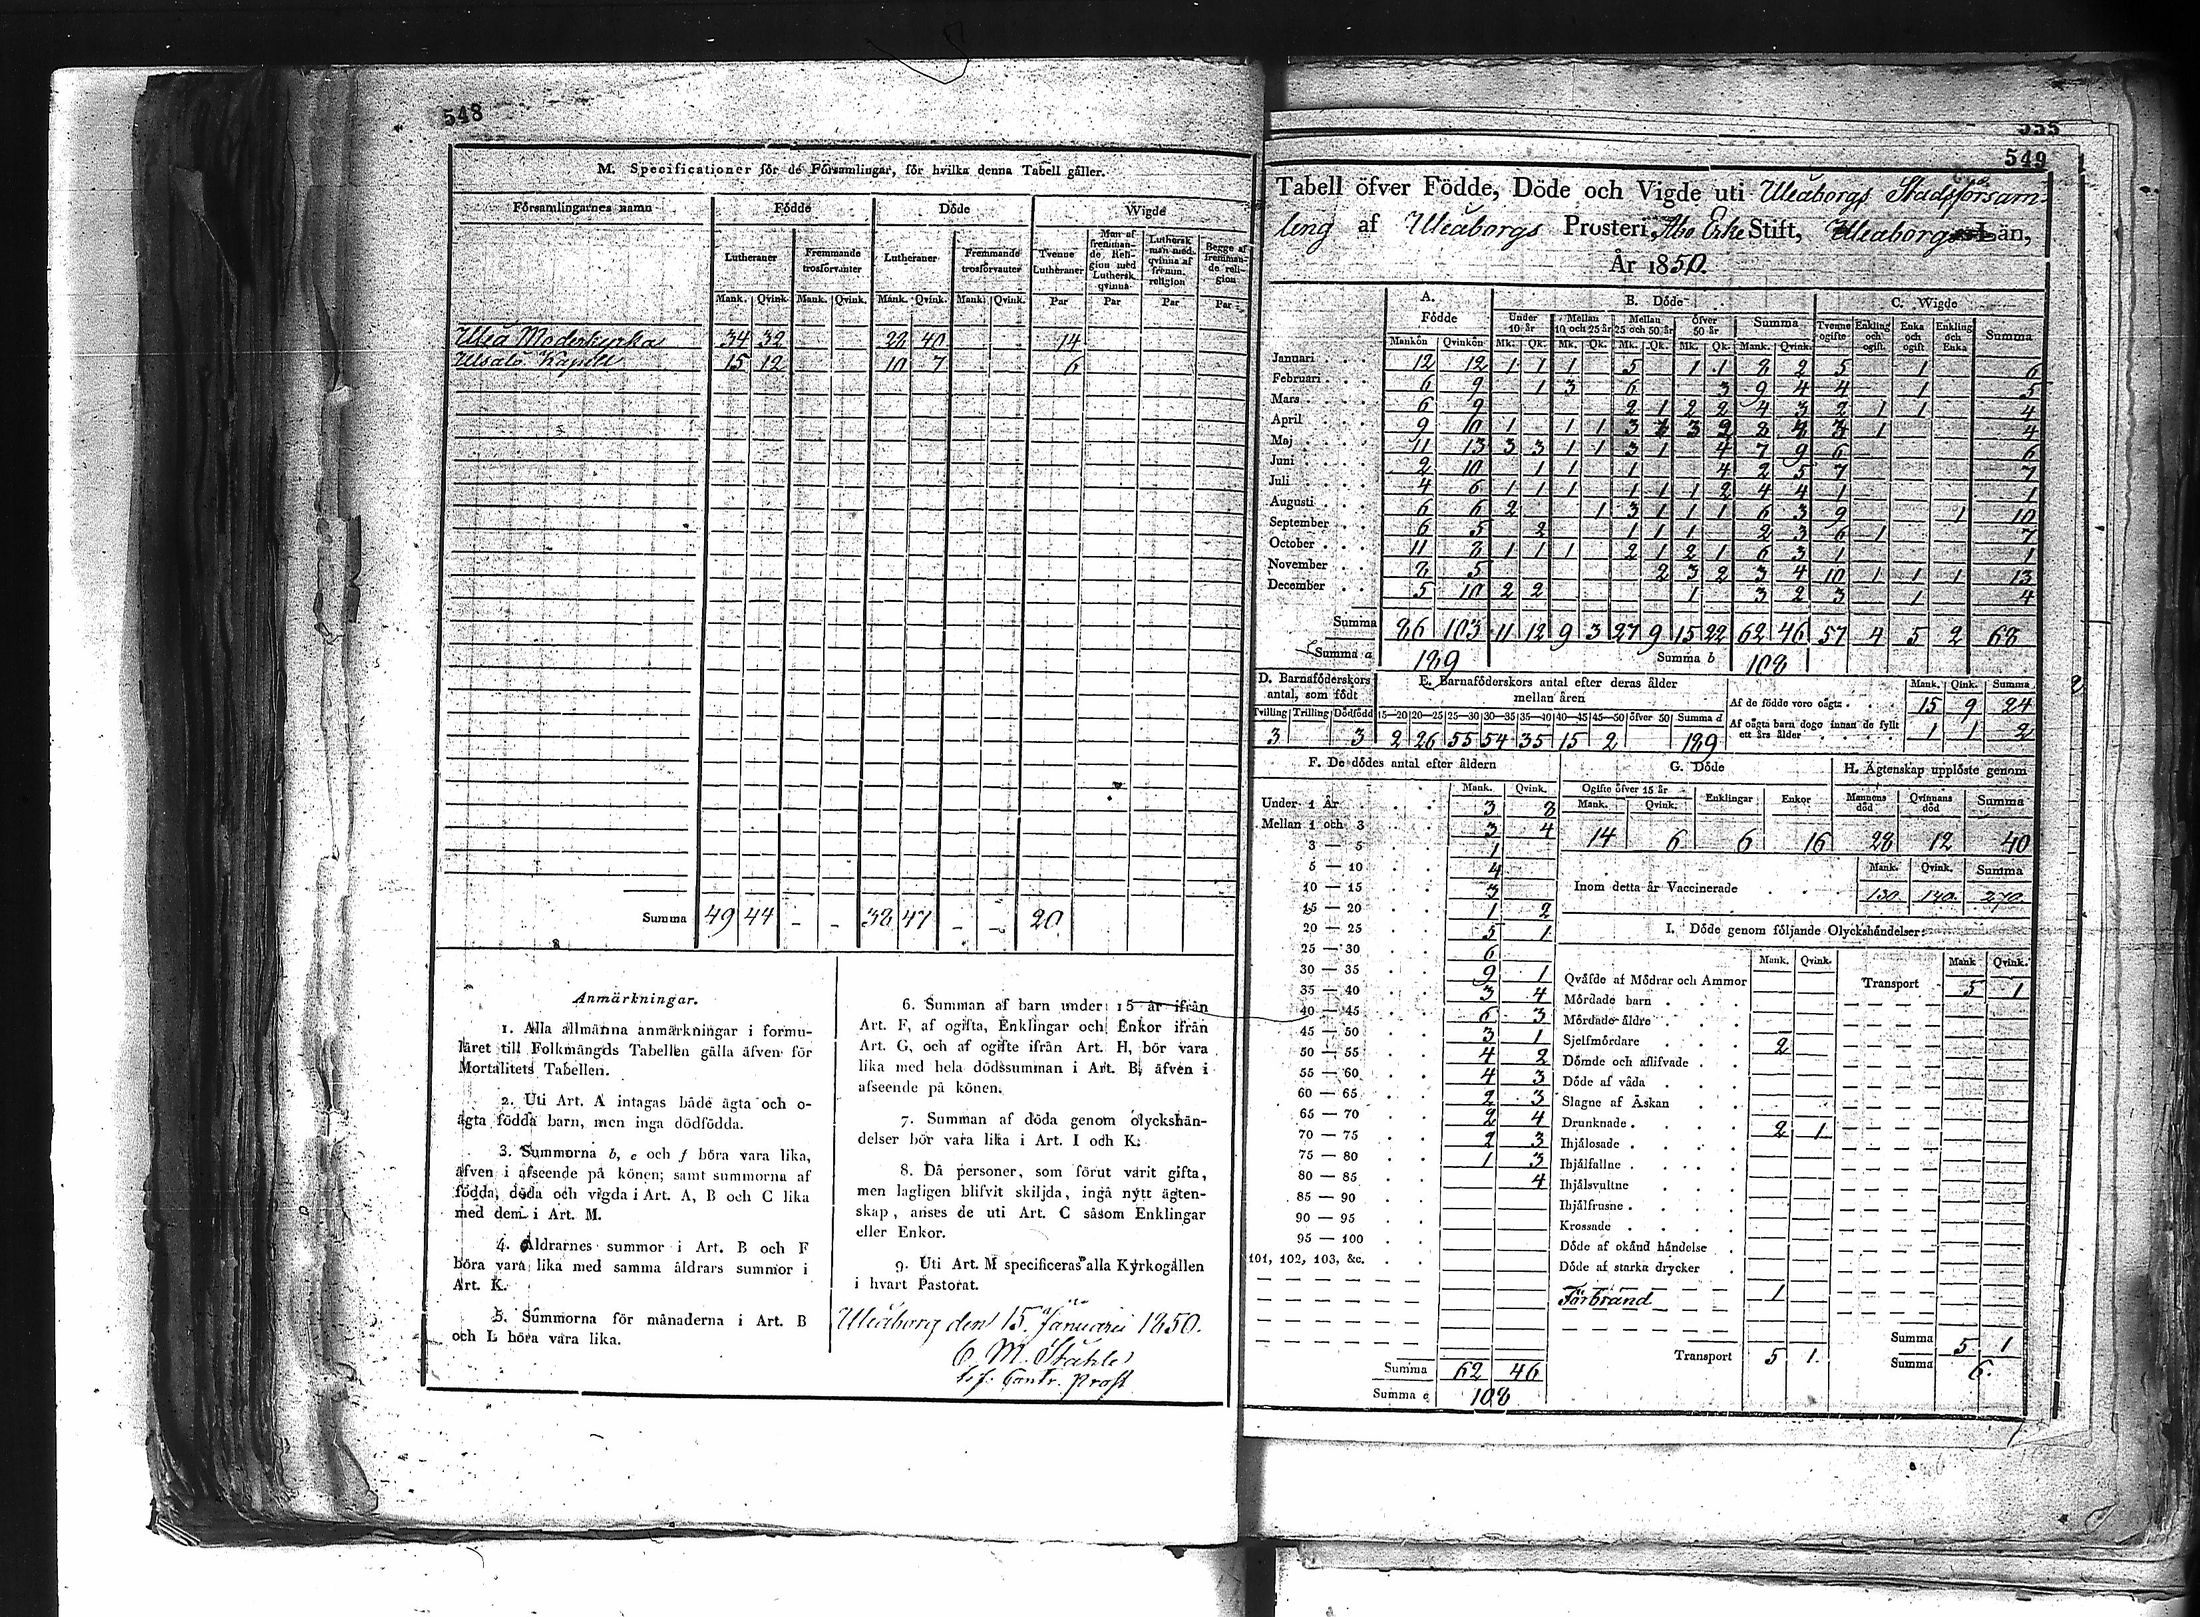 548
M. Specificationer för de Församlingar, för hvilka denna Tabell gäller.
Församlingarnes namn Födde Döde Wigde
Lutheraner Fremmande trosförvanter Lutheraner Fremmande trosförvanter Tvenne Lutheraner Man af fremmande Religion med Luthersk qvinna Luthersk man med qvinna af fremm. religion Begge af fremmande religion
Mank. Qvink. Mank. Qvink. Mank. Qvink. Mank. Qvink. Par Par Par Par
Uleå Moderkyrka 34 32 28 40 14
Uleåsalo Kapell 15 12 10 7 6
Summa 49 44 - - 38 47 - - 20
Anmärkningar.
1. Alla allmänna anmärkningar i formu-
läret till Folkmängds Tabellen gälla äfven för
Mortalitets Tabellen.
2. Uti Art. A intagas både ägta och o-
ägta födda barn, men inga dödfödda.
3. Summorna b, e och f böra vara lika,
äfven i afseende på könen; samt summorna af
födda, döda och vigda i Art. A, B och C lika
med dem i Art. M.
4. Åldrarnes summor i Art. B och F
böra vara lika med samma åldrars summor i
Art. K.
5. Summorna för månaderna i Art. B
och L böra vara lika.
6. Summan af barn under 15 år ifrån
Art. F, af ogifta, Enklingar och Enkor ifrån
Art. G, och af ogifte ifrån Art. H, bör vara
lika med hela dödssumman i Art. B, äfven i
afseende på könen.
7. Summan af döda genom olyckshän-
delser bör vara lika i Art. I och K.
8. Då personer, som förut varit gifta,
men lagligen blifvit skiljda, ingå nytt ägten-
skap, anses de uti Art. C såsom Enklingar
eller Enkor.
9. Uti Art. M specificeras alla Kyrkogällen
i hvart Pastorat.
Uleåborg den 15 Januarii 1850.
C. M. Ståhle
t.f. Contr. Prost
535
549
Tabell öfver Födde, Döde och Vigde uti Uleåborgs Stadsförsam-
ling af Uleåborgs Prosteri, Åbo Erke Stift, Uleåborgs Län,
År 1850.
A. Födde B. Döde C. Wigde
Under 10 år Mellan 10 och 25 år Mellan 25 och 50 år öfver 50 år Summa Tvenne ogifte Enkling och ogift. Enka och ogift Enkling och Enka Summa
Mankön Qvinkön Mk. Qk. Mk. Qk. Mk. Qk. Mk. Qk. Mank. Qvink.
Januari 12 12 1 1 1 5 1 1 8 2 5 1 6
Februari 6 9 1 3 6 3 9 4 4 1 5
Mars 6 9 2 1 2 2 4 3 2 1 1 4
April 9 10 1 1 1 3 3 2 8 3 1 4
Maj 11 13 3 3 1 1 3 1 4 7 9 6 6
Juni 2 10 1 1 1 4 2 5 7 7
Juli 4 6 1 1 1 1 1 1 2 4 4 1 1
Augusti 6 6 2 1 3 1 1 1 6 3 9 1 10
September 6 5 2 1 1 1 2 3 6 1 7
October 11 8 1 1 1 2 1 2 1 6 3 1 1
November 8 5 2 3 2 3 4 10 1 1 1 13
December 5 10 2 2 1 3 2 3 1 4
Summa 86 103 11 12 9 3 27 9 15 22 62 46 57 4 5 2 68
Summa a 189 Summa b 108
D. Barnaföderskors antal, som födt
Tvilling Trilling Dödfödd
3 3
E. Barnaföderskors antal efter deras ålder
mellan åren
15—20 20—25 25—30 30—35 35—40 40—45 45—50 öfver 50 Summa d
2 26 55 54 35 15 2 189
Mank. Qink. Summa
Af de födde voro oägta 15 9 24
Af oägta barn dogo innan de fyllt
ett års ålder 1 1 2
F. De dödes antal efter åldern
Mank. Qvink.
Under 1 År 3 8
Mellan 1 och 3 3 4
3 — 5 1
5 — 10 4
10 — 15 3
15 — 20 1 2
20 — 25 5 1
25 — 30 6
30 — 35 9 1
35 — 40 3 4
40 — 45 6 3
45 — 50 3 1
50 — 55 4 2
55 — 60 4 3
60 — 65 2 3
65 — 70 2 4
70 — 75 2 3
75 — 80 1 3
80 — 85 4
85 — 90
90 — 95
95 — 100
101, 102, 103, &c.
Summa 62 46
Summa e 108
G. Döde
Ogifte öfver 15 år Enklingar Enkor
Mank. Qvink.
14 6 6 16
H. Ägtenskap upplöste genom
Mannens död Qvinnans död Summa
28 12 40
Mank. Qvink. Summa
Inom detta år Vaccinerade 130 140 270
I. Döde genom följande Olyckshändelser:
Mank. Qvink. Mank Qvink.
Qväfde af Mödrar och Ammor Transport 5 1
Mördade barn
Mördade äldre
Sjelfmördare 2
Dömde och aflifvade
Döde af våda
Slagne af Åskan
Drunknade 2 1
Ihjälosade
Ihjälfallne
Ihjälsvultne
Ihjälfrusne
Krossade
Döde af okänd händelse
Döde af starka drycker
Förbränd 1
Transport 5 1
Summa 5 1
Summa 6.